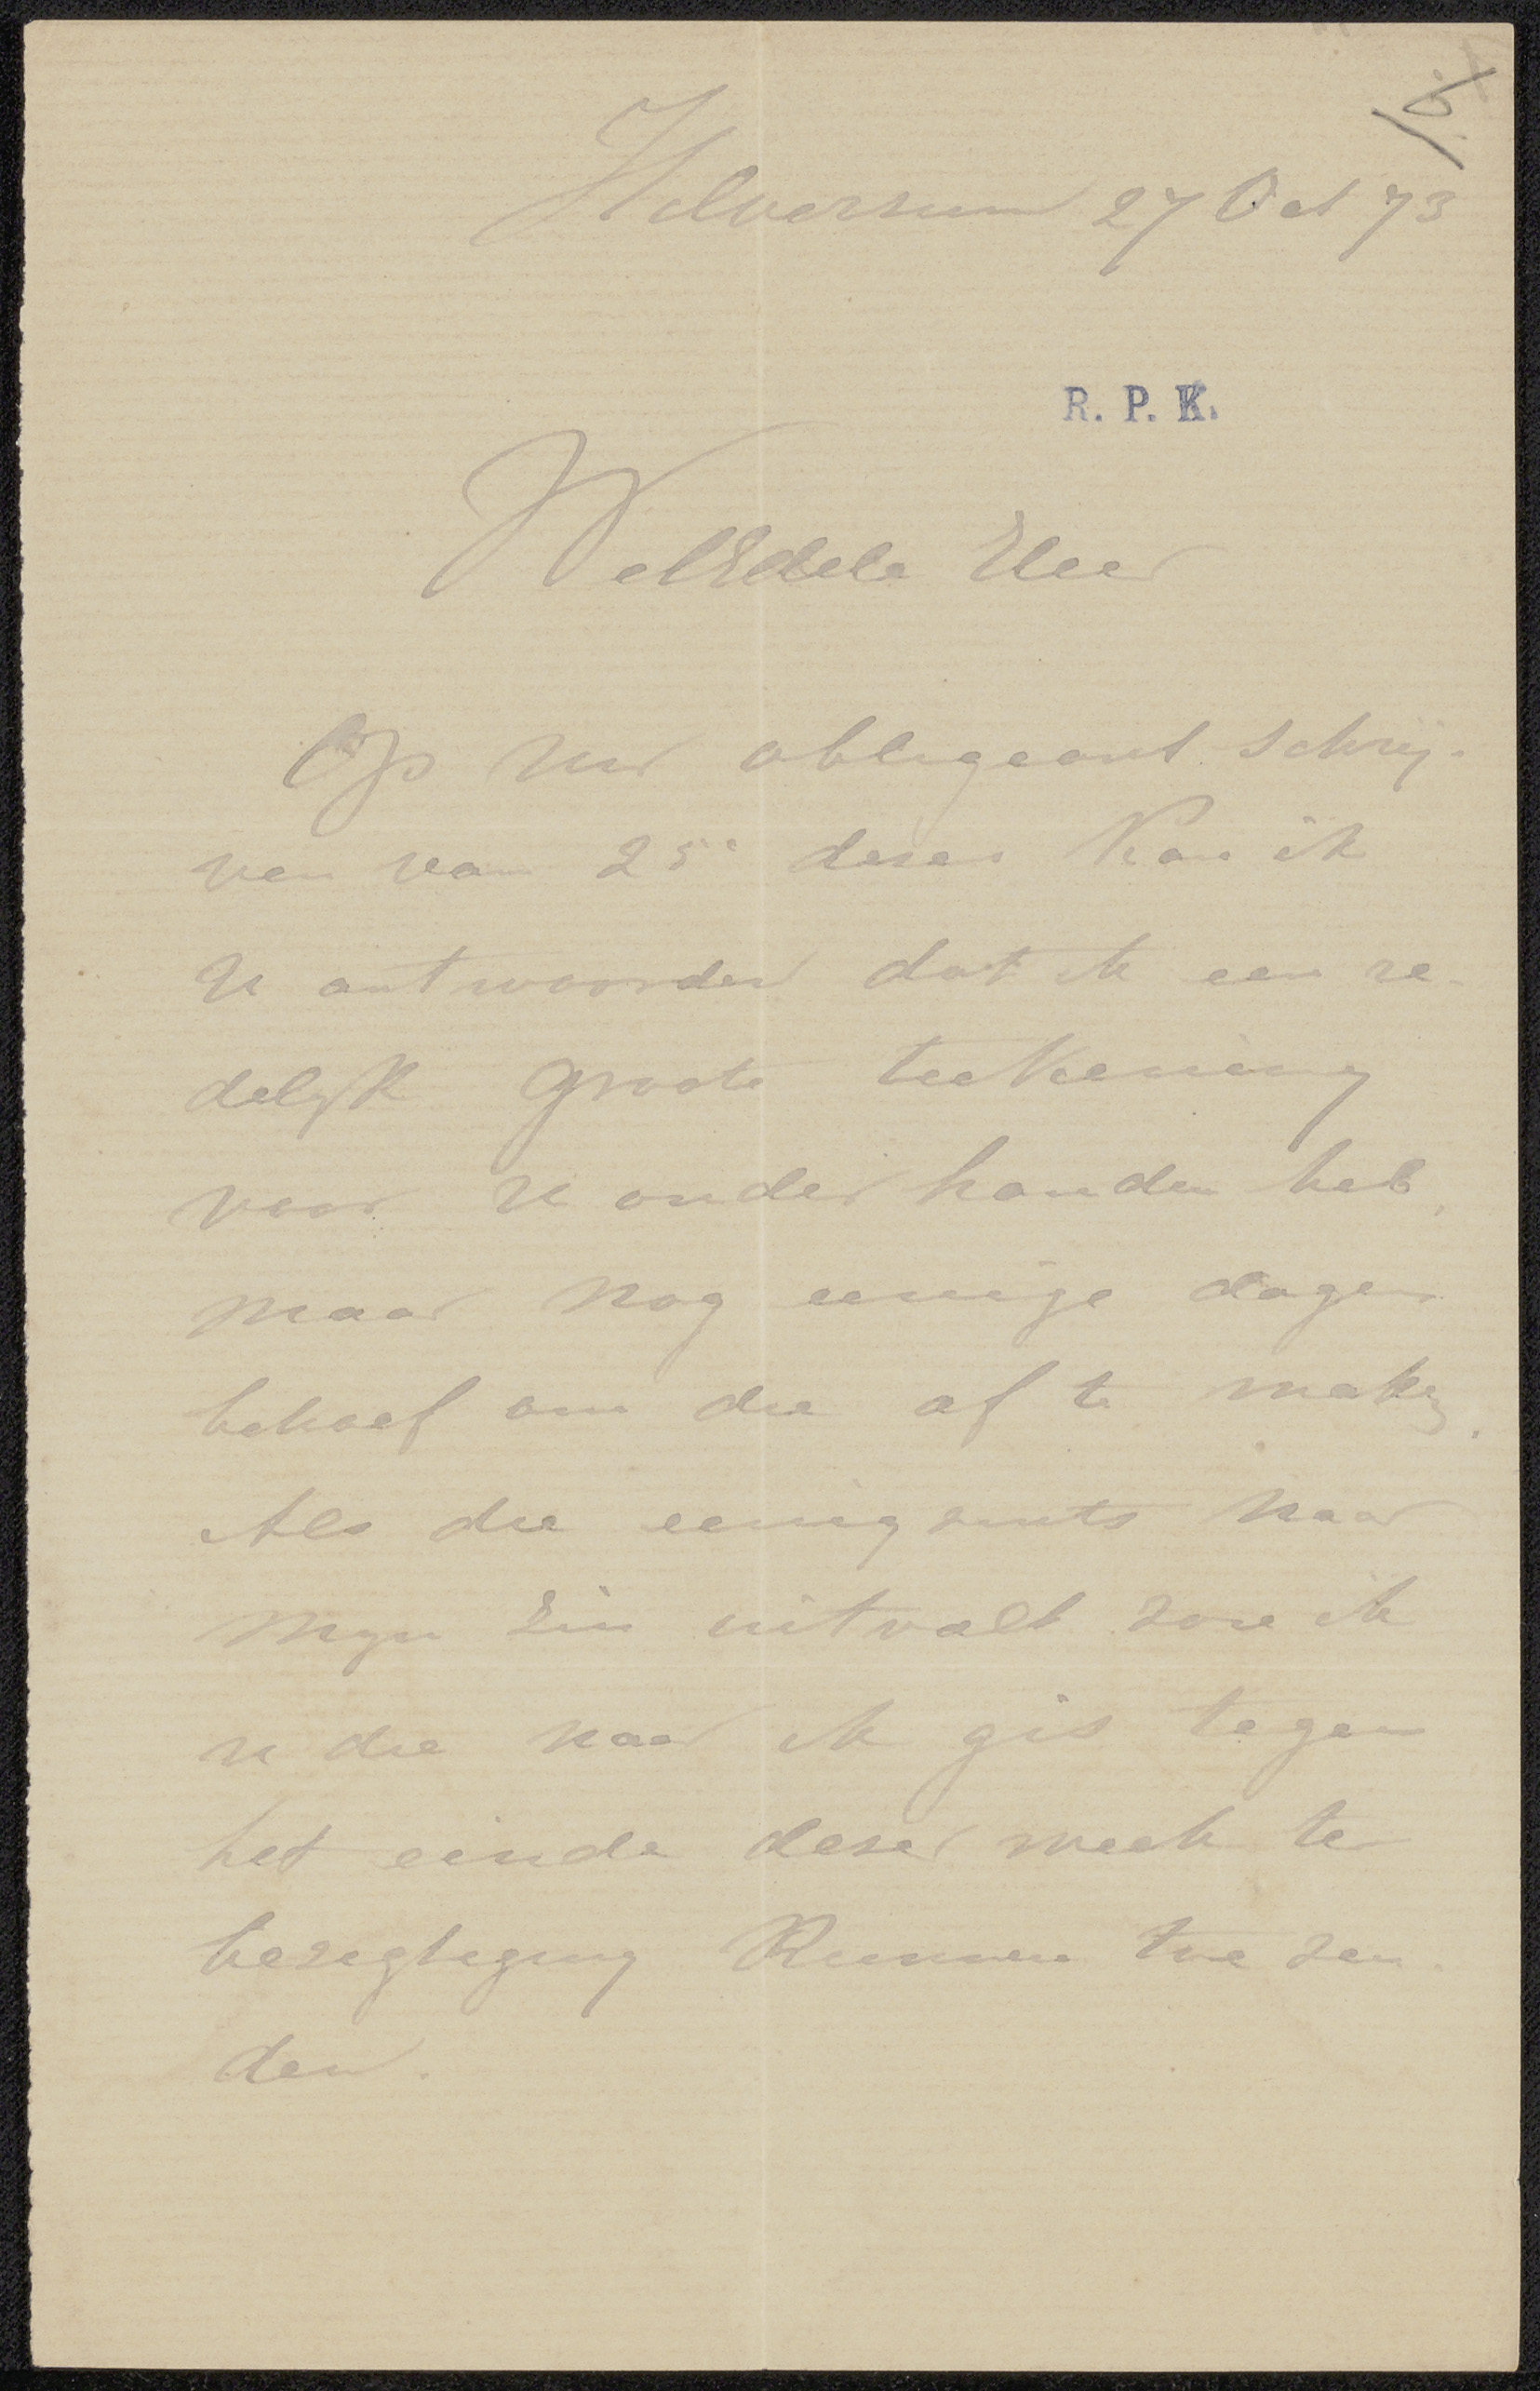 Hilversum 27 Oct 73
R. P. K.
WelEdele Heer
Op uw obligeant schrij-
ven van 25 deser kan ik
u antwoorden dat ik een re-
delijk groote teekening
voor u onder handen heb,
maar nog eenige dagen
behoef om die af te maken.
Als die eenigsints naar
mijn zin uitvalt zou ik
u die naar ik gis tegen
het einde deser week ter
besigtiging kunnen toe zen-
den.